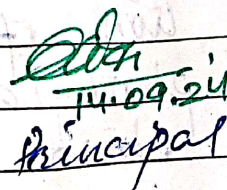 14.09.24
Principal